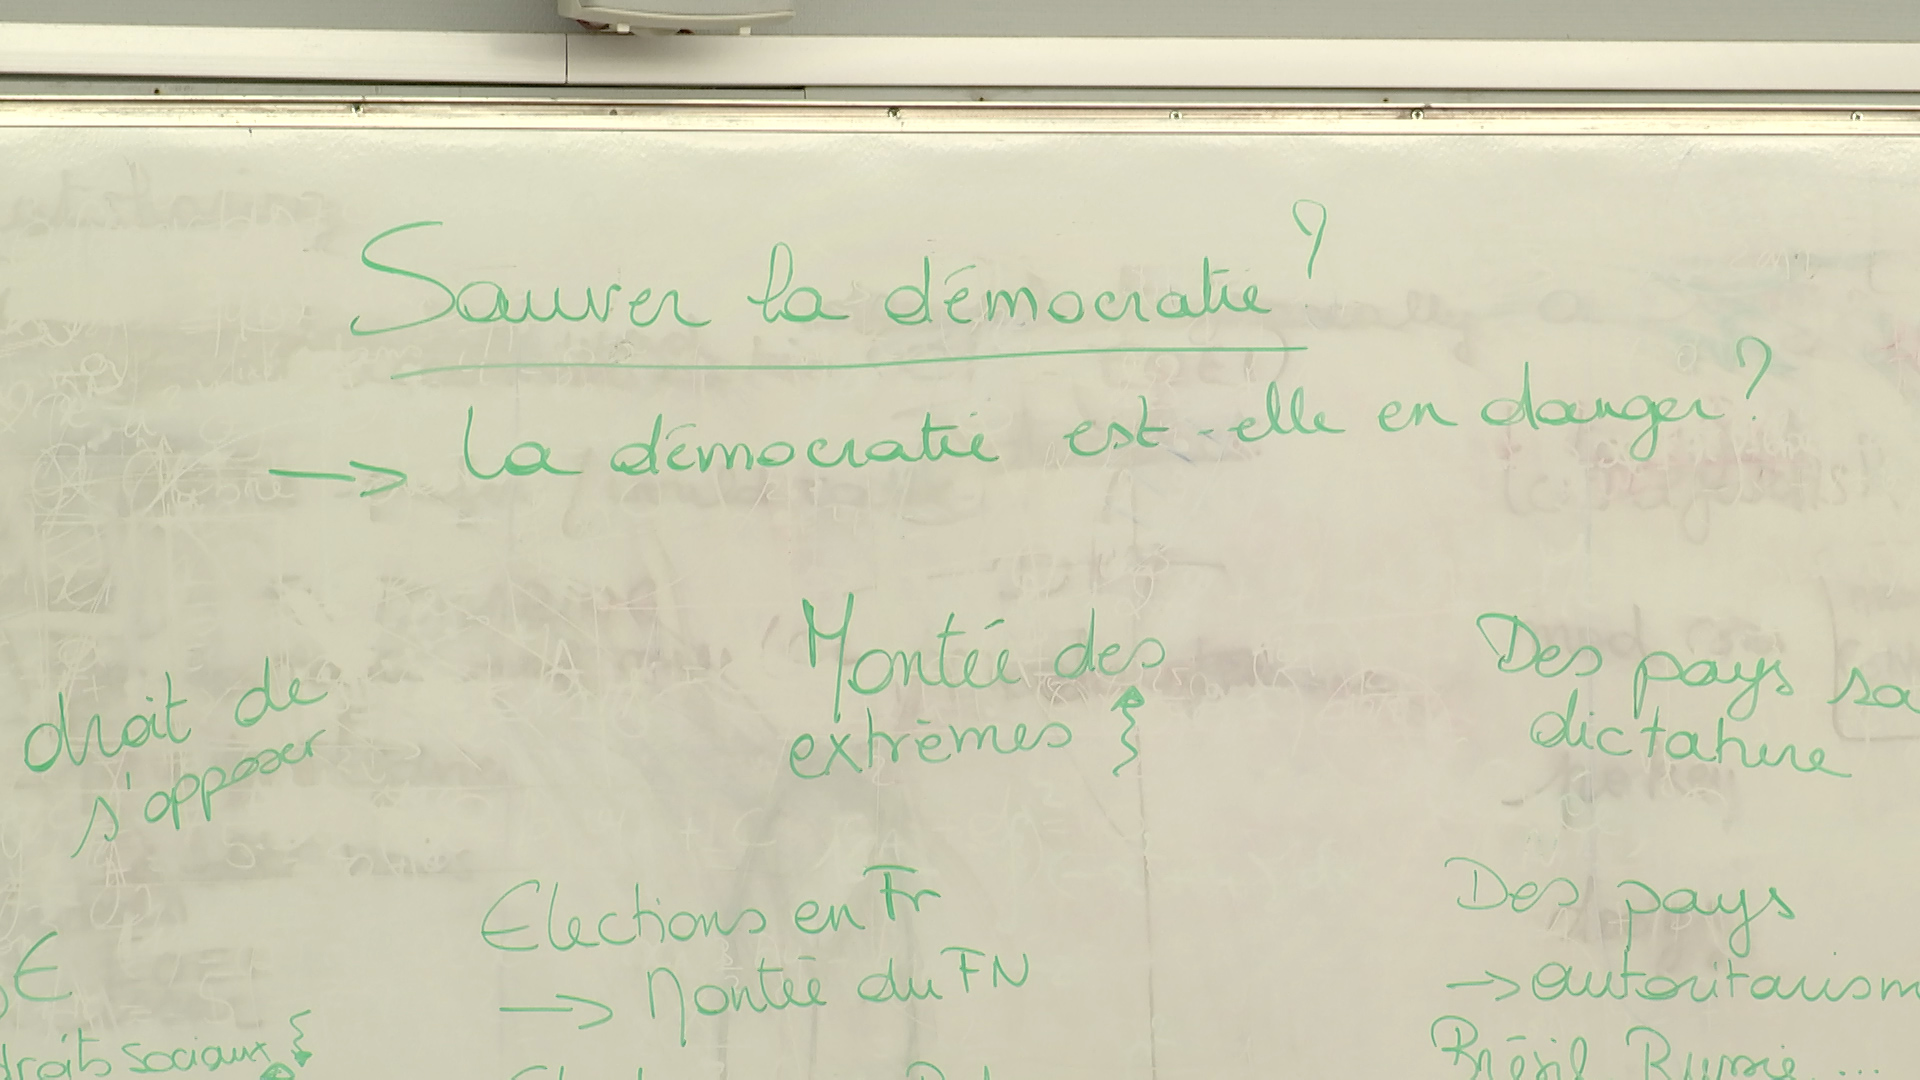 Sauver la démocratie ?
→ la démocratie est-elle en danger ?
droit de
s'opposer
Montée des
extrêmes
Des pays
dictature
Elections en Fr
→ Montée du FN
Des pays
→ autoritarism
Brésil Russie ...
€
droits sociaux